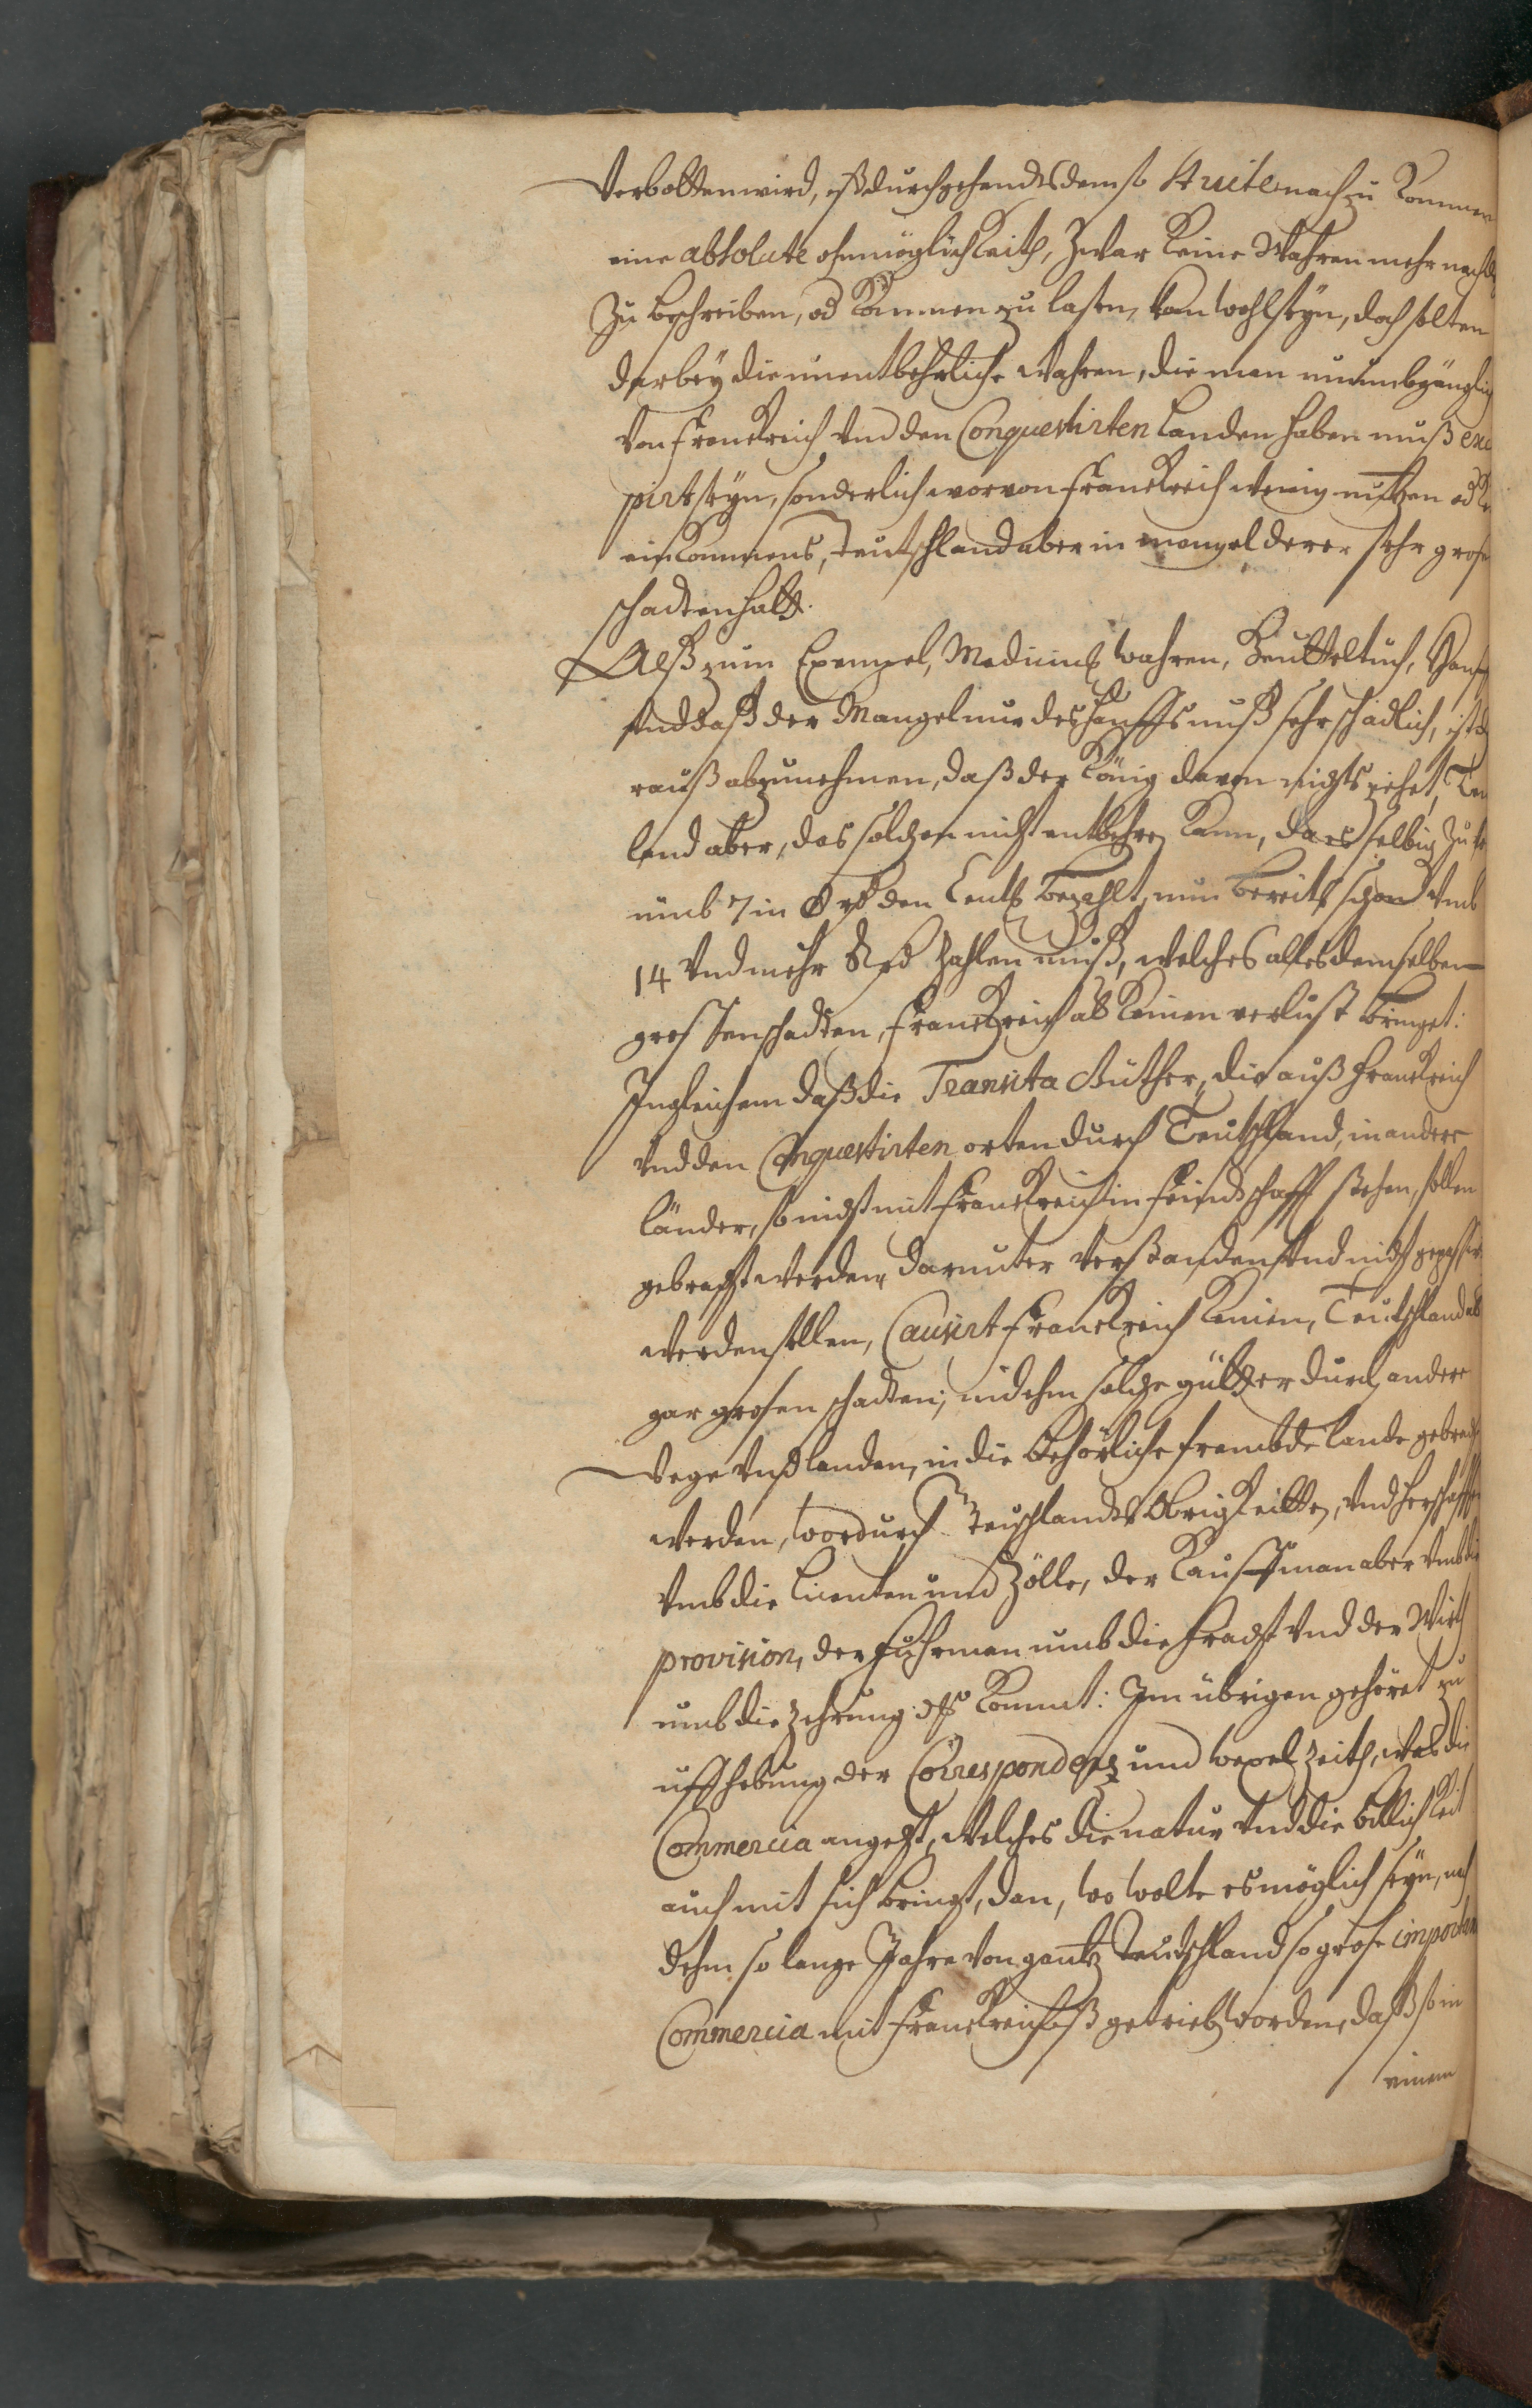 Verbotten wird, ist durchgehendts dem so stricte nach zu Kommen
eine absolute ohnmöglichkeith, Zwar Keine Wahren mehr nach
Zu beschreiben, od Kommen zu lasen, kan wohl seyn, doch solten
darbey die unentbehrliche Wahren, die man unumbgänglich
von Franckreich vnd den Conquestirten Landen haben muß exci
pirt seyn, sonderlich worvon Franckreich wenig nutzen od
einkommens, Teutschland aber in mangel derer sehr grosen
schadten hatt.
Alß zum Exempel, Medicin wahren, Beutteltuch, Hanff
vnd daß der Mangel nur des Hanffs muß sehr schädlich, ist
rauß abzunehmen, daß der König davon nichts ziehet,
land aber, das solchen nicht entbehren kann, da es selbig Zu
umb 7 in 8 den Centn bezahlt, nun bereits schon vmb
14 vnd mehr zahlen muß, welches alles demselben
grossen schadten, Franckreich ab Keinen verlust bringet:
Ingleichem daß die Transita Güther, die auß Franckreich
vnd den Conquestirten orten durch Teutschland, in andere
länder, so nicht mit Franckreich in feindschafft stehen, sollen
gebracht werden, darunter verstanden vnd nicht gepassirt
werden sollen, Causirt Franckreich Keinen, Teutschland ab
gar grosen schadten, indehm solche gütter durch andere
Wege vnd landen, in die behörliche frembde lande gebracht
werden, wordurch Teuschlandes Obrigkeitten, vnd Herschafften
vmb die licenten und Zölle, der Kauffman aber vmb die
provision, der Fuhrman umb die fracht vnd der Wirth
umb die zehrung Kommt: Im übrigen gehöret zu
uffhebung der Correspondentz und wexel zeith, was die
Commercia angeht, welches die natur vnd die billichkeit
auch mit sich bringt, dan, wo wolte es möglich seyn, nach
dehm so lange Jahre von gantz Teutschland so grose importante
Commercia mit Franckreich ist getrieben worden, daß so in
einem